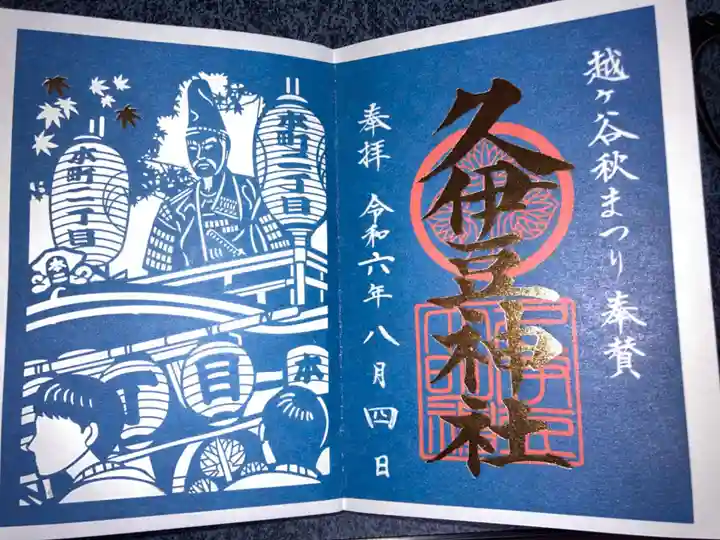 越ヶ谷秋まつり奉賛
久伊豆神社
奉拝 令和六年八月四日
本町二丁目
本町二丁目
丁目
本